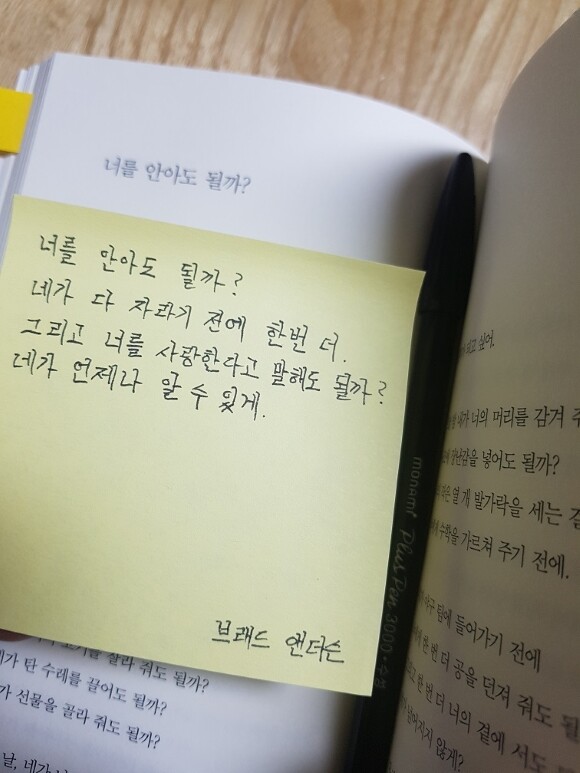 너를 안아도 될까?
너를 안아도 될까?
네가 다 자라기 전에 한번 더.
그리고 너를 사랑한다고 말해도 될까?
네가 언제나 알 수 있게.
브래드 앤더슨
잘라 줘도 될까?
탄 수레를 끌어도 될까?
선물을 골라 줘도 될까?
날, 네가
monami Plus Pen 3000
싶어.
내가 너의 머리를 감겨
장난감을 넣어도 될까?
열 개 발가락을 세는
수학을 가르쳐 주기 전에.
팀에 들어가기 전에
한 번 더 공을 던져 줘도
한 번 더 너의 곁에 서도
넘어지지 않게?